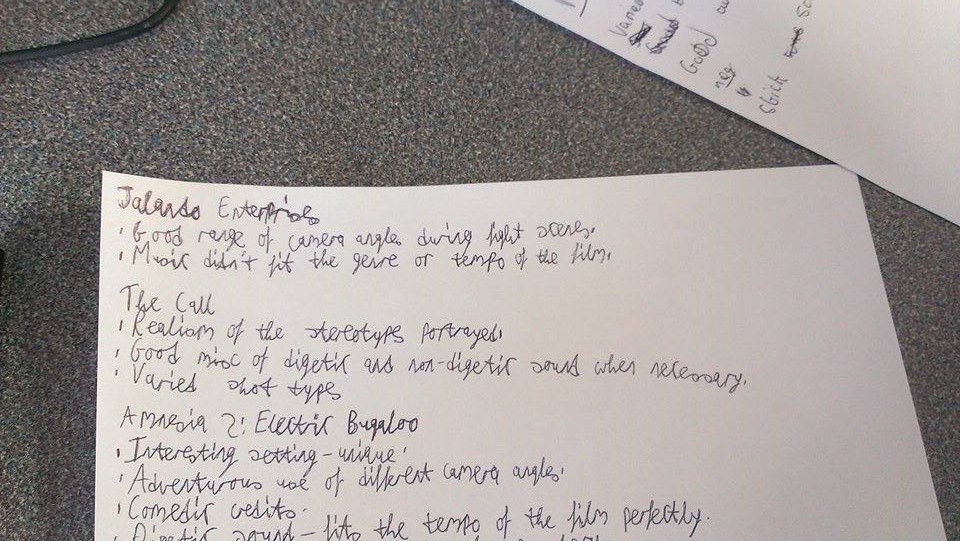 Jalando Enterprises
· Good range of camera angles during fight scenes.
· Music didn't fit the genre or tempo of the film.
The Call
· Realism of the stereotype portrayed.
· Good misc of digetic and non-digetic sound when necessary.
· Varied shot types
Amnesia 2: Electric Bugaloo
· Interesting setting - unique.
· Adventurous use of different camera angles.
· Comedic credits.
· Digetic sound - fits the tempo of the film perfectly.
Varied
Good
neg
Stick